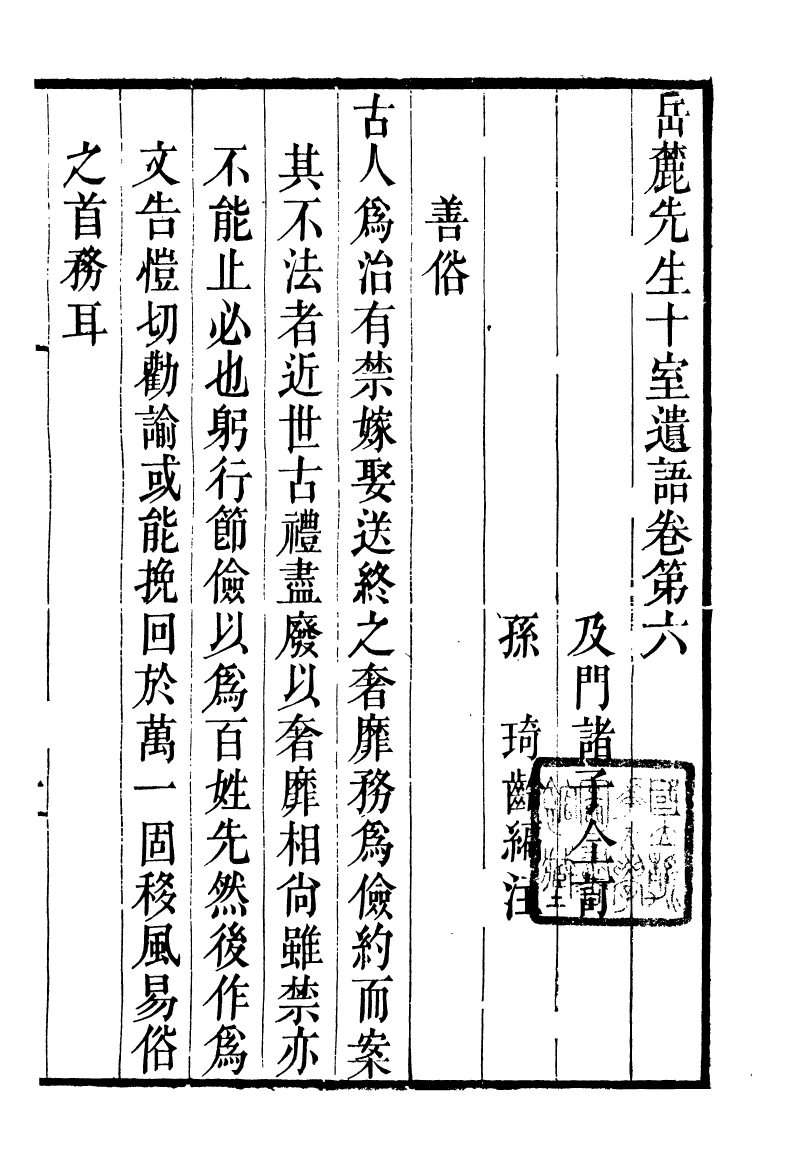 岳麓先生十室遺語卷第六
及門諸子仝訂
孫　琦齡編注
善俗
古人爲治有禁嫁娶送終之奢靡務爲儉約而案
其不法者近世古禮盡廢以奢靡相尚雖禁亦
不能止必也躬行節儉以爲百姓先然後作爲
文告愷切勸諭或能挽回於萬一固移風易俗
之首務耳